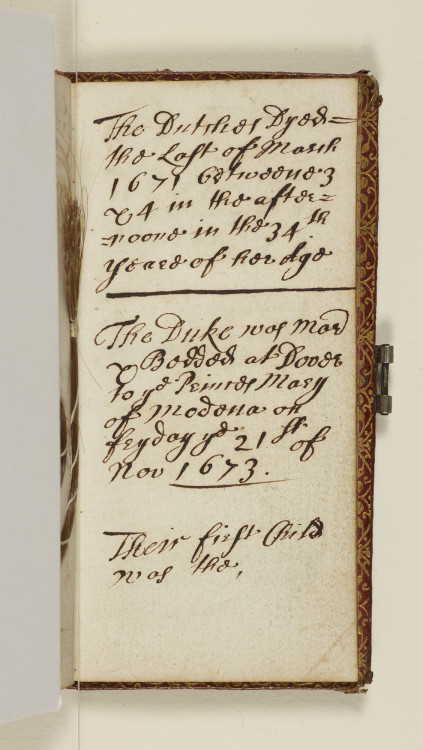 The Dutches Dyed=
the Last of March
1671 betweene 3
& 4 in the after=
=noone in the 34th
yeare of her Age
The Duke was Mard
& Bedded at Dover
to ye Princes Mary
of Modena on
fryday ye 21st of
Nov 1673.
Their first Child
was the,